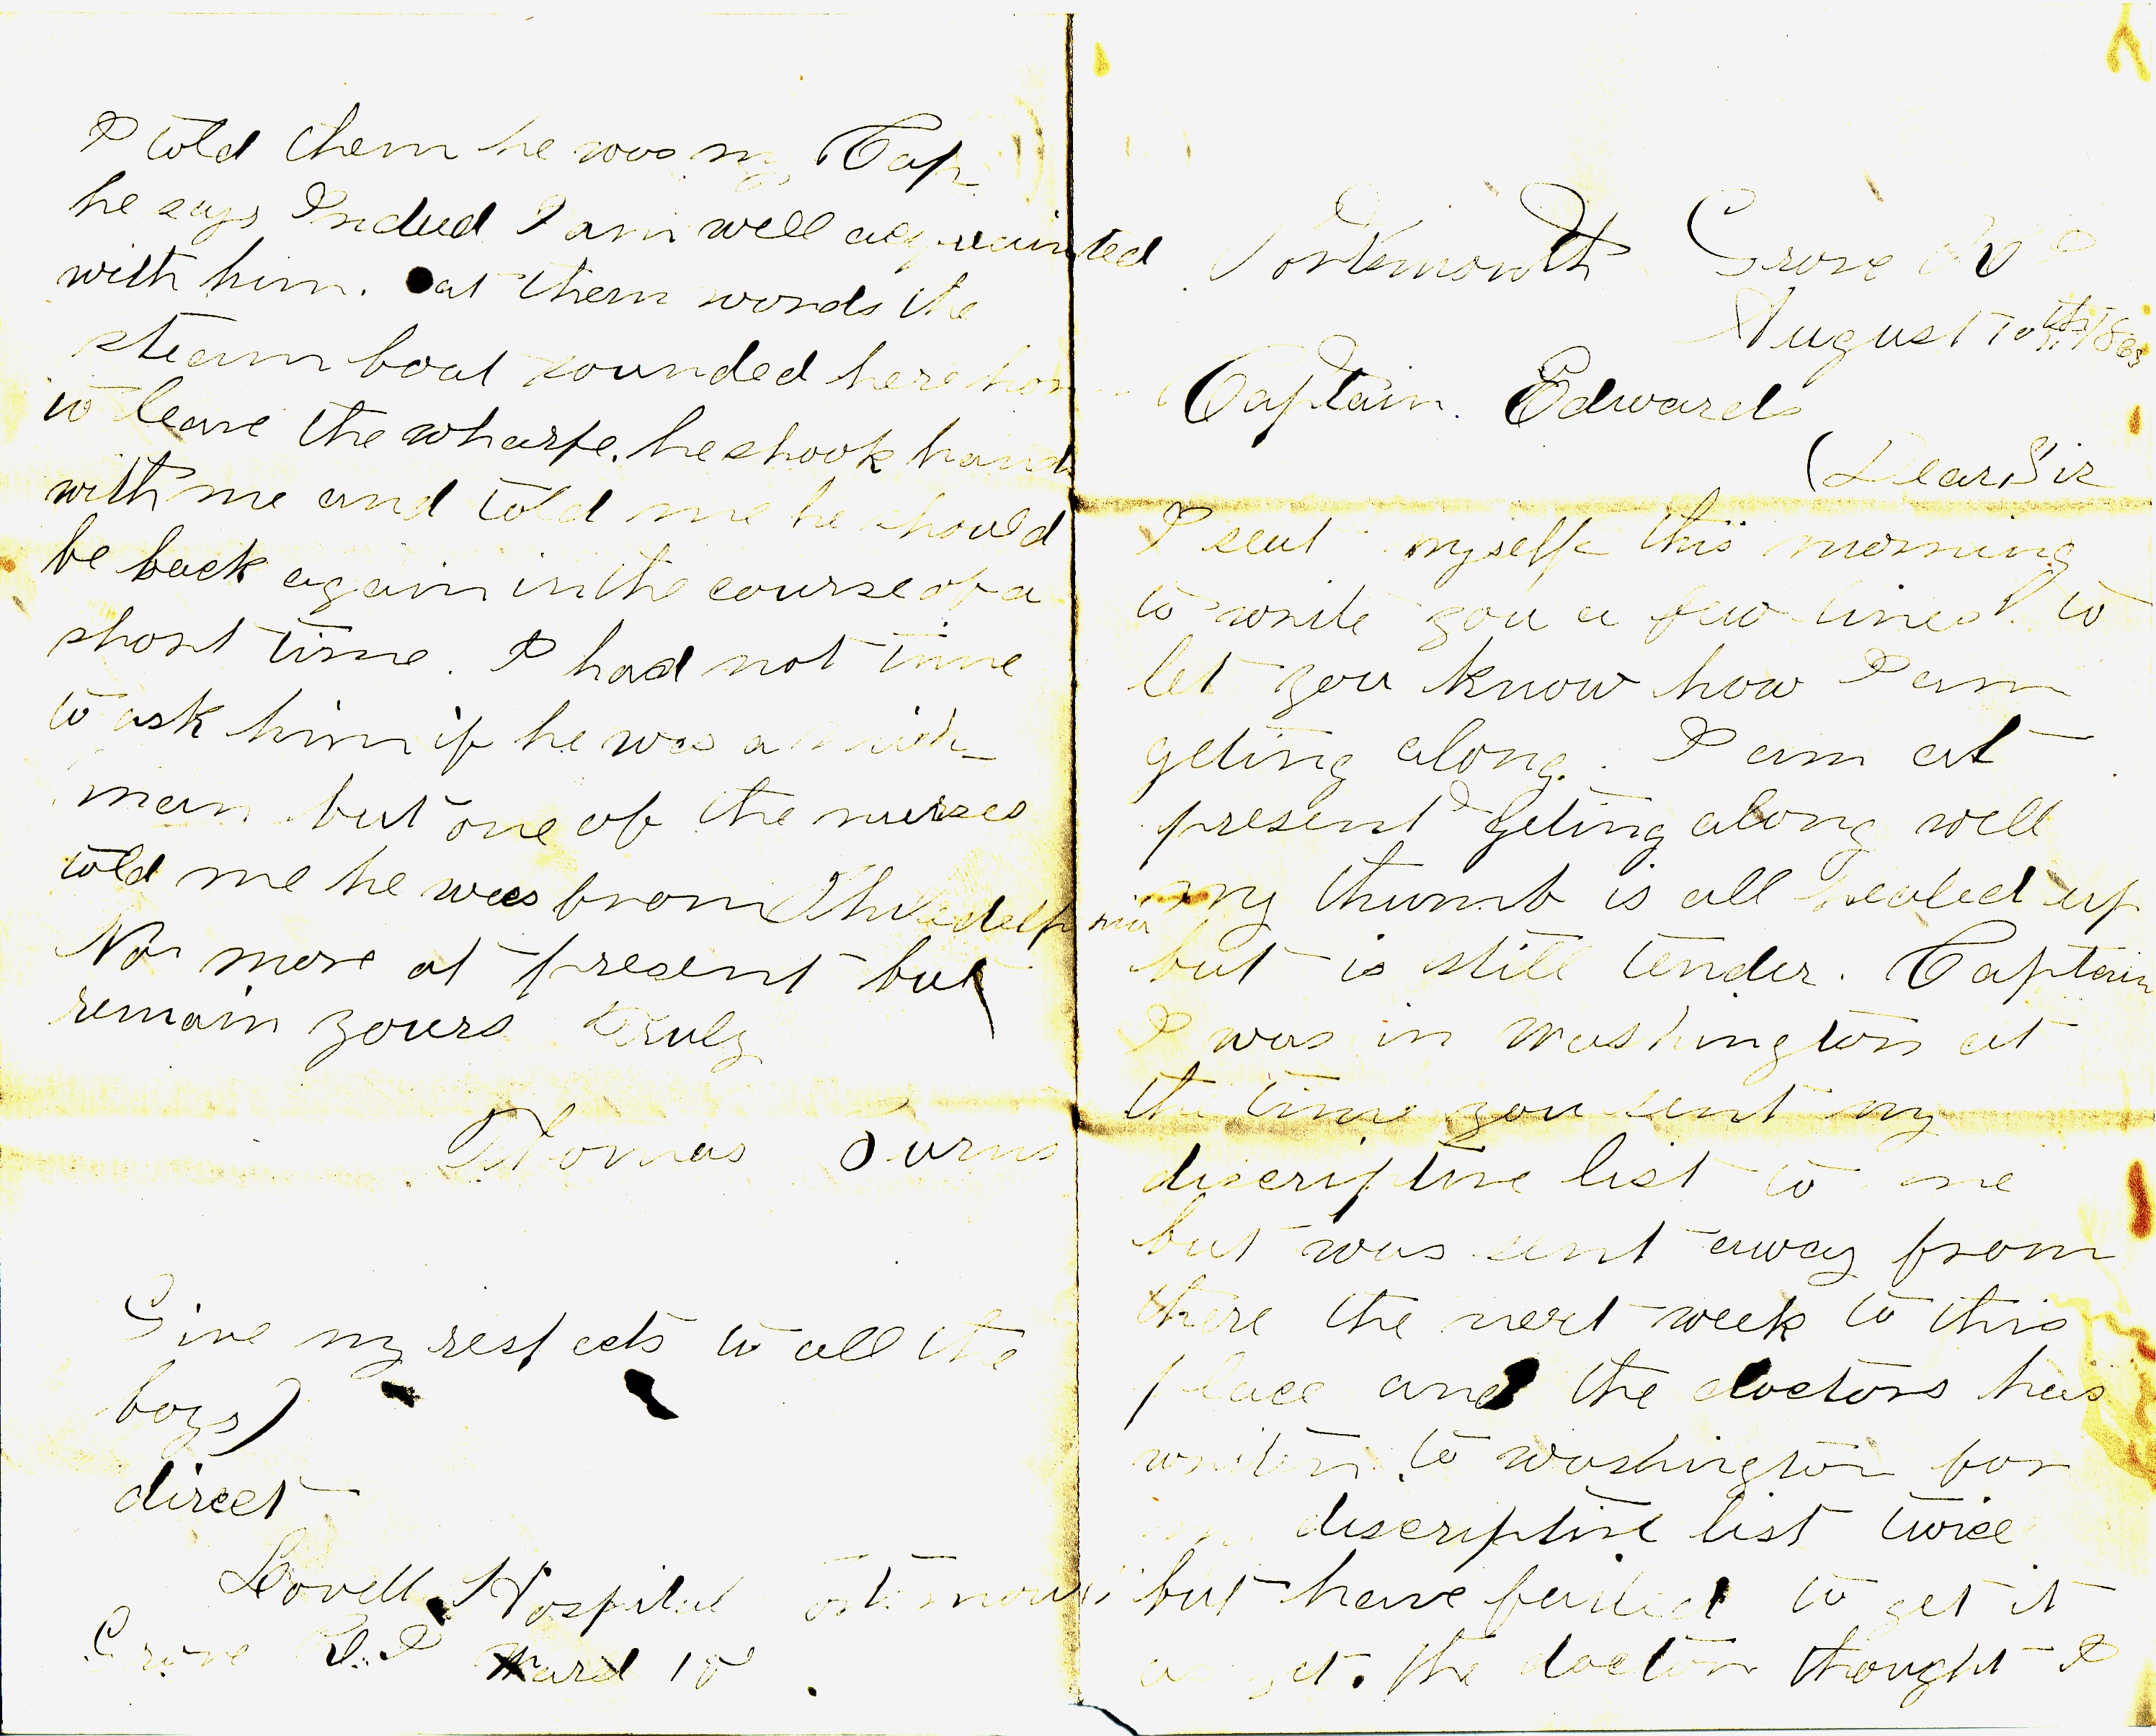 Portsmouth Grove R I
August 10th 186
Captain. Edwards
(Dear Sir
I seat myself this morning
to write you a few lines to
let you know how I am
geting along. I am at
present geting along well
my thumb is all healed up
but is still tender. Captain
I was in Washington at
the time you sent my
discriptive list to me
but was sent away from
there the next week to this
place and the doctors has
writen to washington for
my discriptive list twice
but have failed to get it
as yet. the doctor thought I
I told them he was my Cap
he says Indeed I am well acquainted
with him. at them words the
steam boat sounded here horn
to leave the wharfe. he shook hands
with me and told me he should
be back again in the course of a
short time. I had not time
to ask him if he was a
man but one of the nurses
told me he was from Philadelphia
No more at present but
remain yours truly
Thomas Burns
Give my respects to all the
boys)
direct
Lovell Hospital Portsmouth
Grove R. I Ward 18